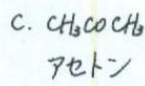 C. CH₃COCH₃
アセトン